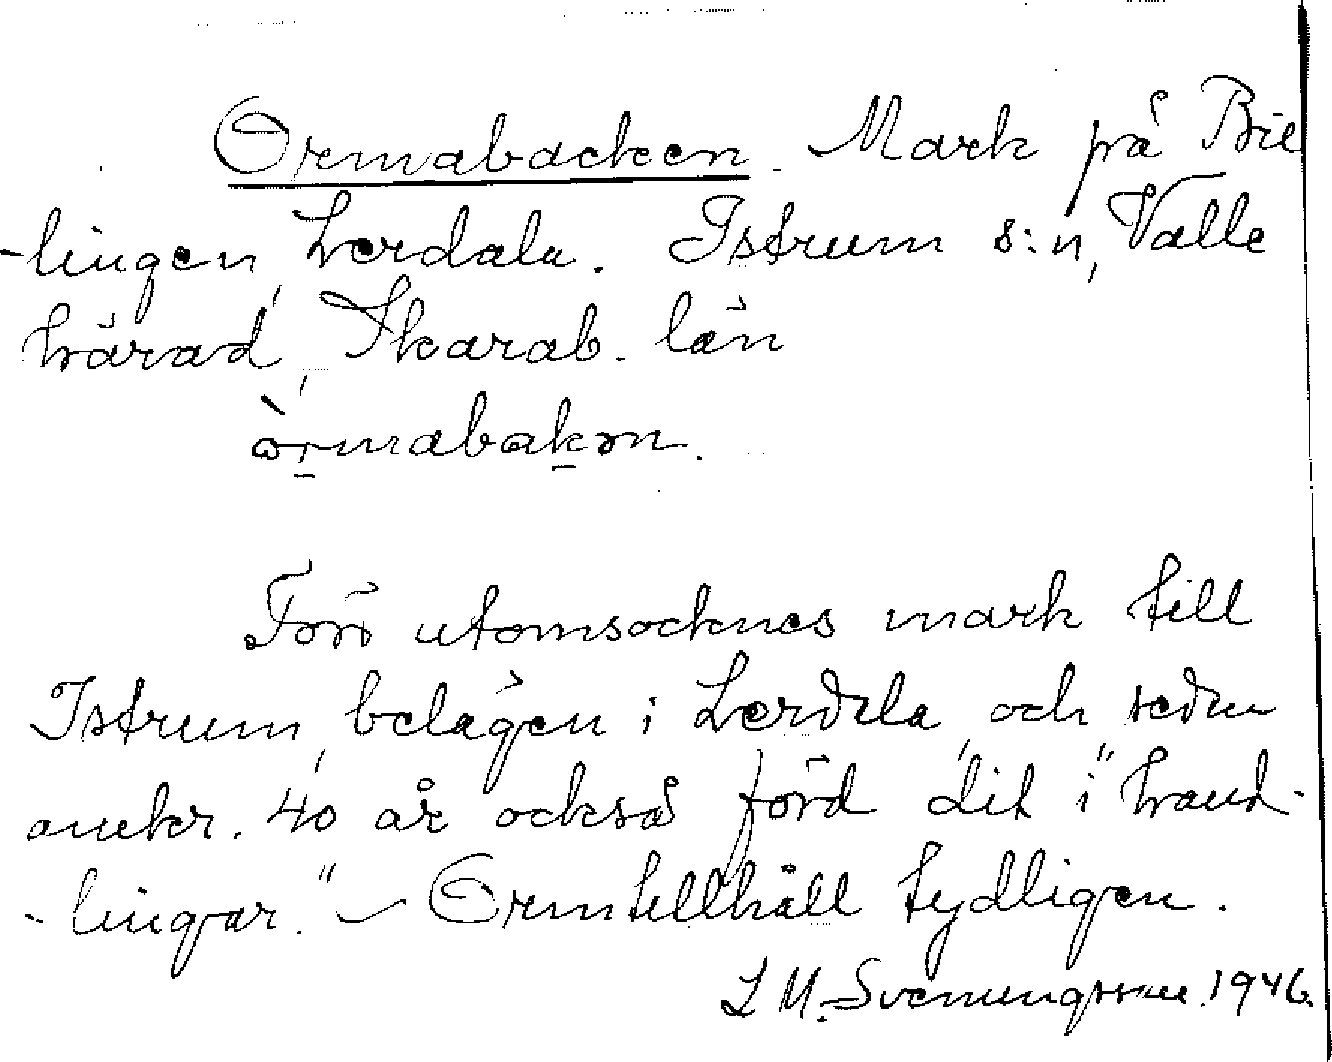 Ormabacken. Mark på Bil
-lingen, Lerdala. Istrum s:n, Valle
härad, Skarab. län
òrmabakən.
Förr utomsocknes mark till
Istrum, belägen i Lerdala, och sedan
omkr. 40 år också förd dit i "hand-
-lingar." – Ormtillhåll tydligen.
L M. Svenungsson 1946.